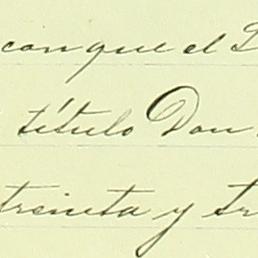 con que el
título Don
treinta y tr